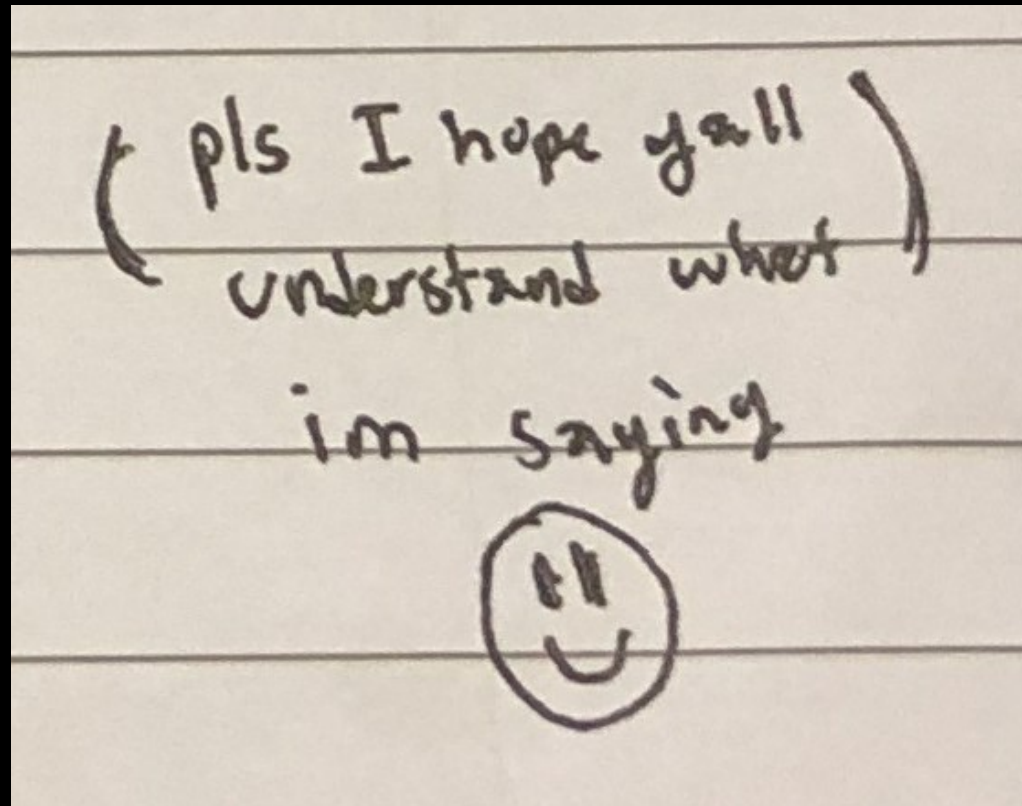 (pls I hope yall)
understand what
im saying